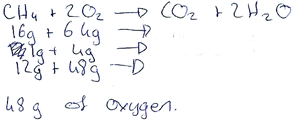 CH4 + 2O2 → CO2 + 2H2O
16g + 64g →
1g + 4g →
12g + 48g →
48g of oxygen.